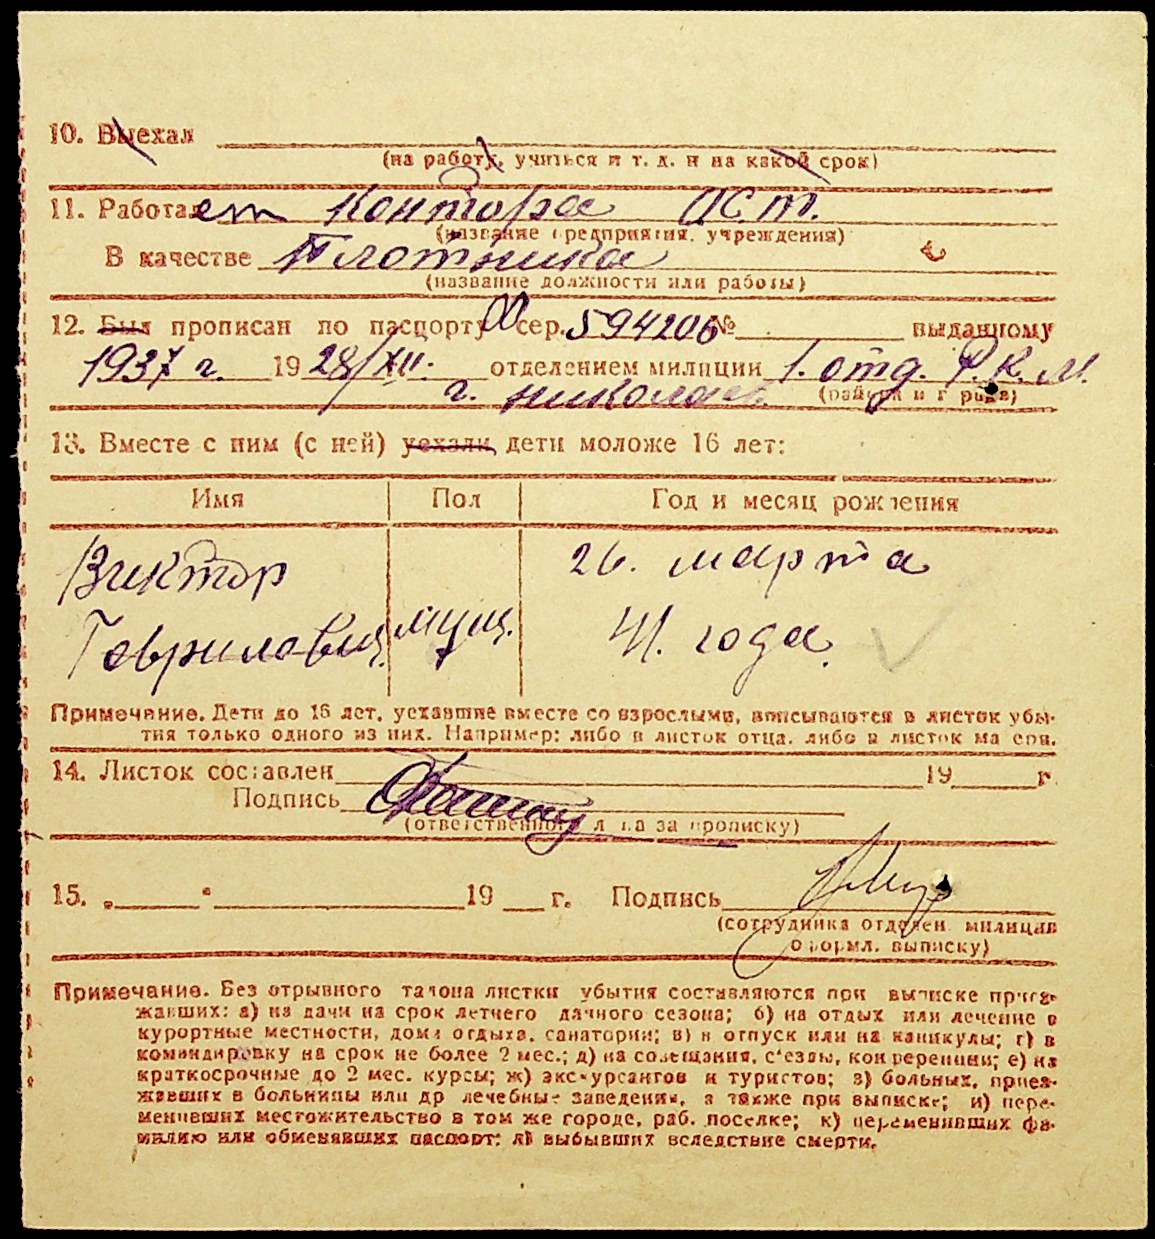 10. Выехал
(на работу, учиться и т. д. и на какой срок)
11. Работает контора
(название предприятия, учреждения)
В качестве Плотника
(название должности или работы)
12. Был прописан по паспорту сер. 594206 № выданному
1937 г. 19 28/XII. отделением милиции 1. отд. Р.К.М.
г. николаев (района и города)
13. Вместе с ним (с ней) уехали дети моложе 16 лет:
Имя Пол Год и месяц рождения
Виктор 26. марта
Гаврилович муж. 41. года.
Примечание. Дети до 16 лет, уехавшие вместе со взрослыми, вписываются в листок убы-
тия только одного из них. Например: либо в листок отца, либо в листок матери.
14. Листок составлен 19 г.
Подпись
(ответственного лица за прописку)
15. „ “ 19 г. Подпись
(сотрудника отделен. милиции
оформл. выписку)
Примечание. Без отрывного талона листки убытия составляются при выписке приез-
жавших: а) на дачи на срок летнего дачного сезона; б) на отдых или лечение в
курортные местности, дома отдыха, санатории; в) в отпуск или на каникулы; г) в
командировку на срок не более 2 мес.; д) на совещания, с'езды, конференции; е) на
краткосрочные до 2 мес. курсы; ж) экскурсантов и туристов; з) больных, приез-
жавших в больницы или др лечебные заведения, а также при выписке; и) пере-
менивших местожительство в том же городе, раб. поселке; к) переменивших фа-
милию или обменявших паспорт; л) выбывших вследствие смерти.